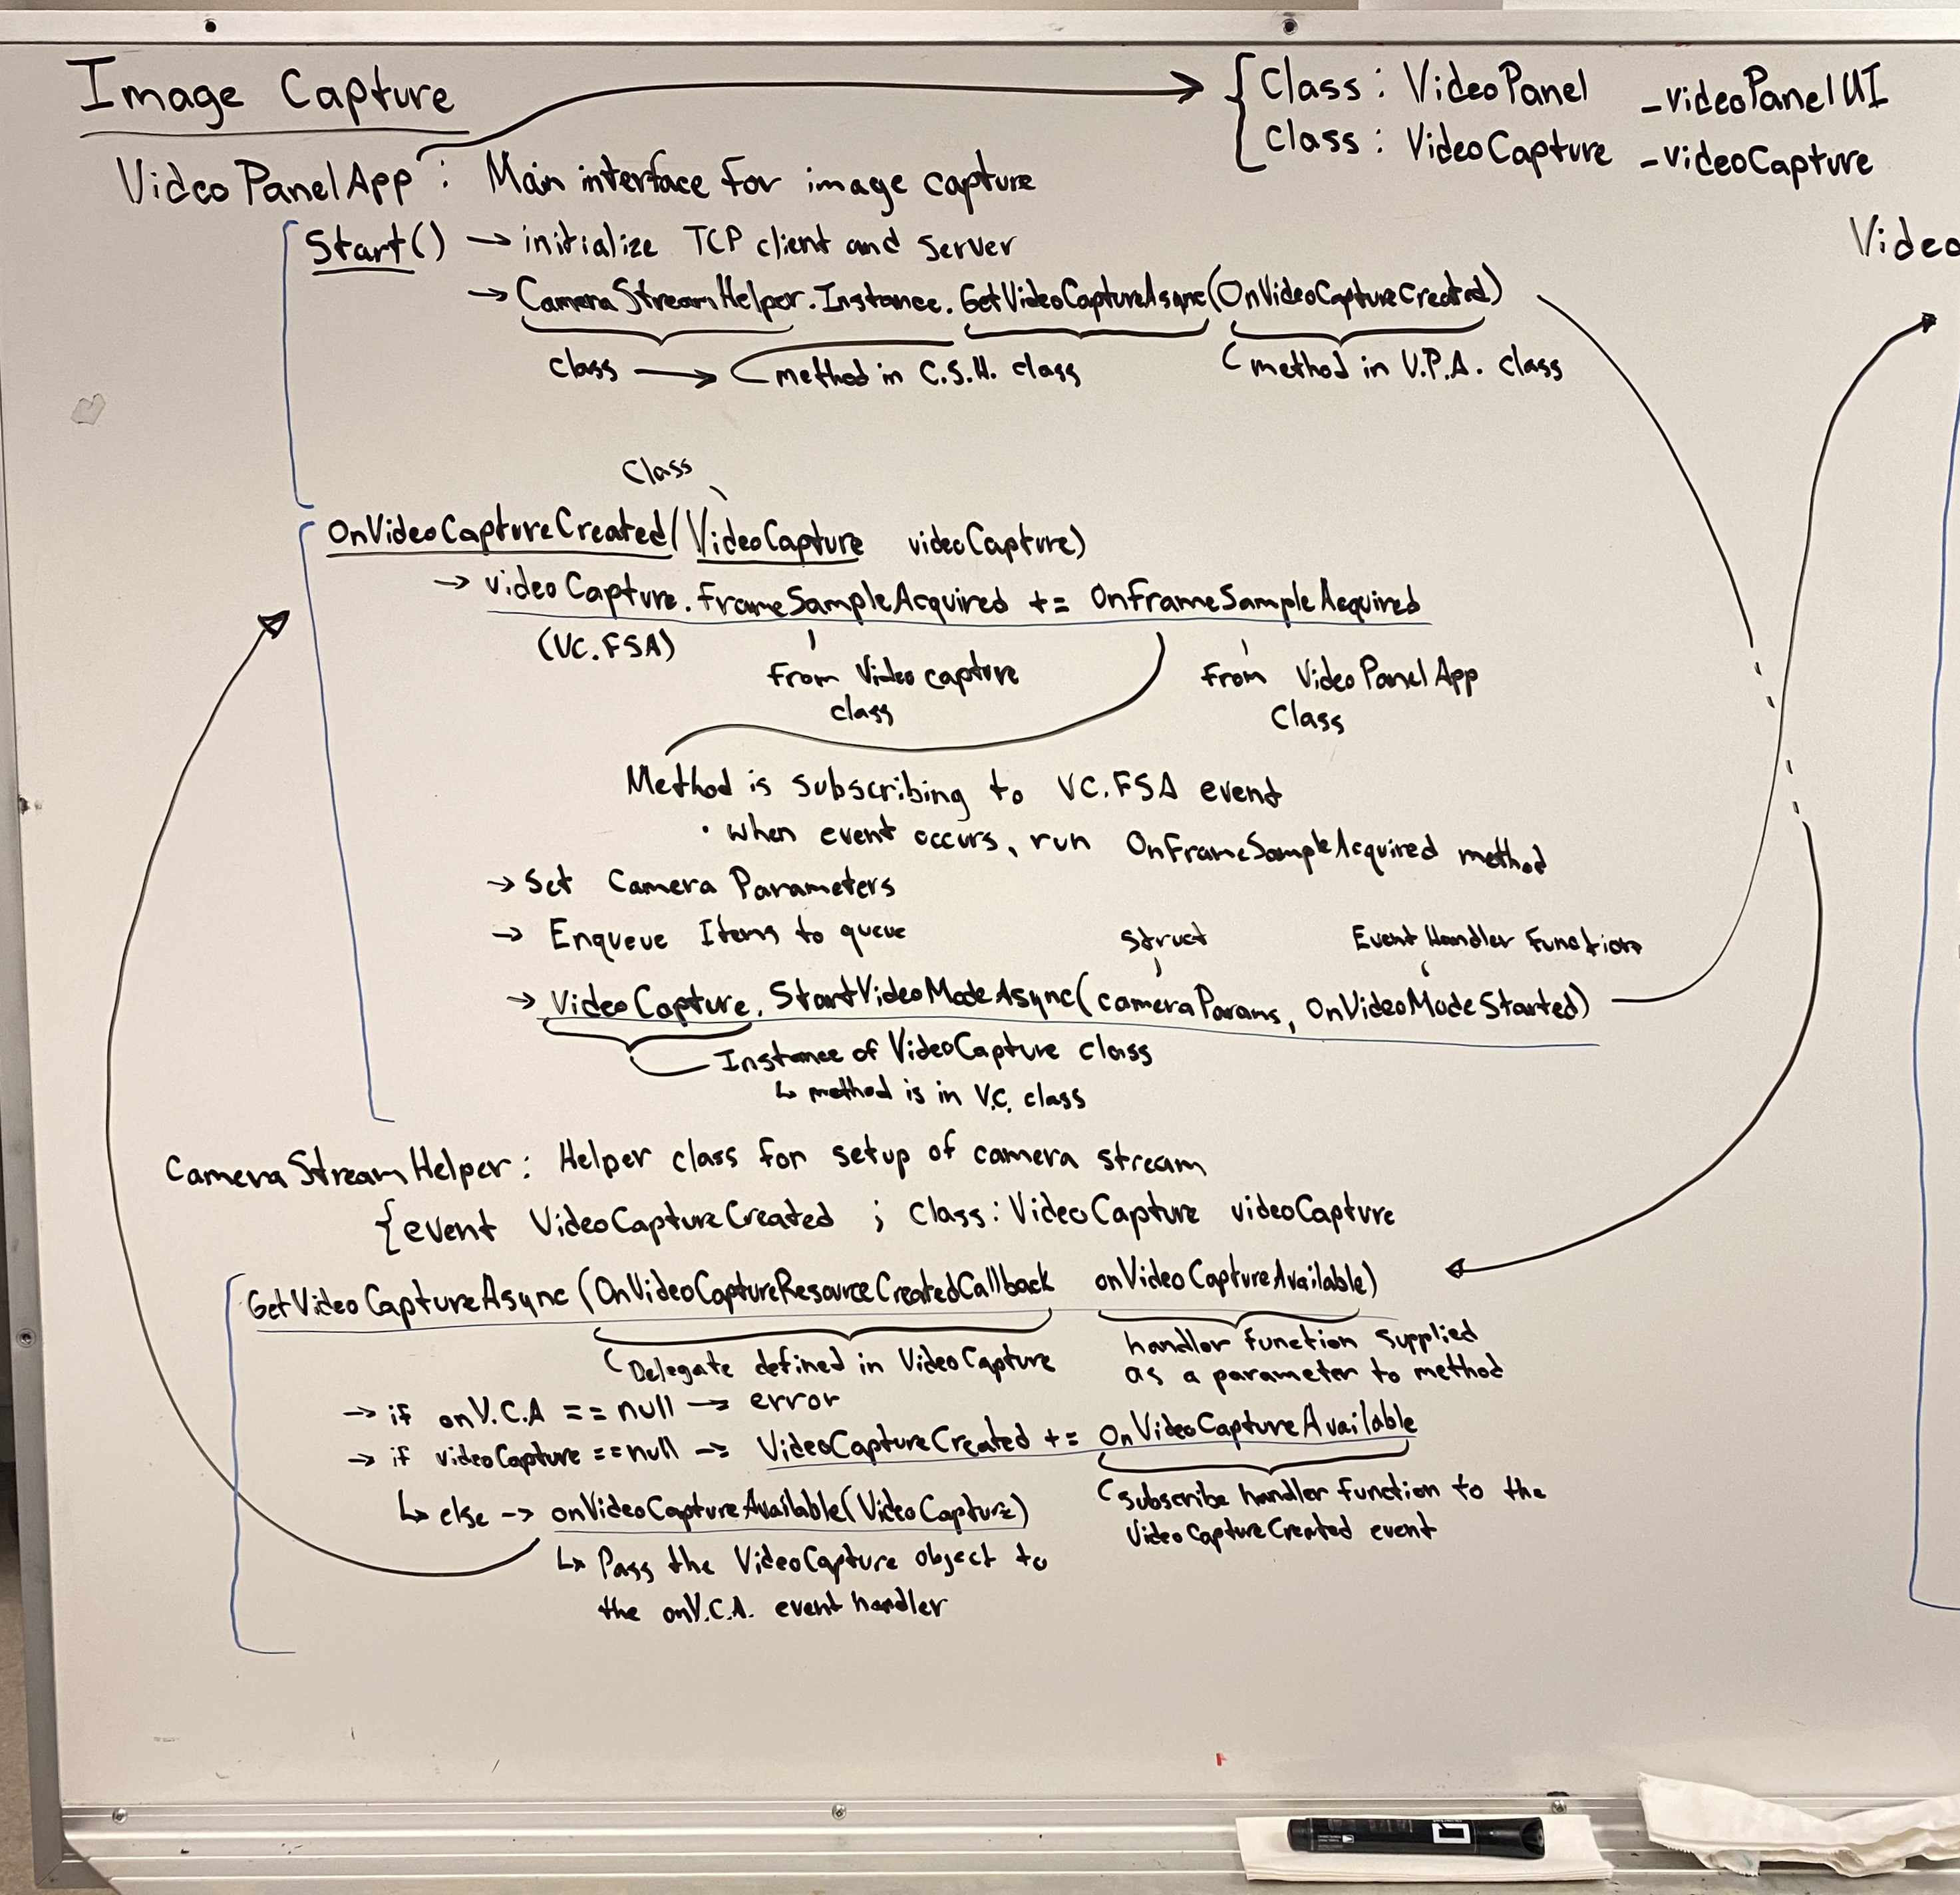 Image Capture
{ Class: VideoPanel _videoPanelUI
Class: VideoCapture _videoCapture
VideoPanelApp: Main interface for image capture
Start() → initialize TCP client and server
→ CameraStreamHelper.Instance.GetVideoCaptureAsync(OnVideoCaptureCreated)
class → method in C.S.H. class
method in V.P.A. class
Video
Class
OnVideoCaptureCreated(VideoCapture videoCapture)
→ videoCapture.FrameSampleAcquired += OnFrameSampleAcquired
(VC.FSA)
From Video capture
class
From VideoPanelApp
Class
Method is subscribing to VC.FSA event
• when event occurs, run OnFrameSampleAcquired method
→ Set Camera Parameters
→ Enqueue Items to queue
struct
Event Handler Function
→ VideoCapture.StartVideoModeAsync(cameraParams, OnVideoModeStarted)
Instance of VideoCapture class
↳ method is in V.C. class
CameraStreamHelper: Helper class for setup of camera stream
{event VideoCaptureCreated ; Class: VideoCapture videoCapture
GetVideoCaptureAsync(OnVideoCaptureResourceCreatedCallback onVideoCaptureAvailable)
Delegate defined in VideoCapture
handler function supplied
as a parameter to method
→ if onV.C.A == null → error
→ if videoCapture == null → VideoCaptureCreated += OnVideoCaptureAvailable
subscribe handler function to the
VideoCaptureCreated event
↳ else → onVideoCaptureAvailable(VideoCapture)
↳ Pass the VideoCapture object to
the onV.C.A. event handler